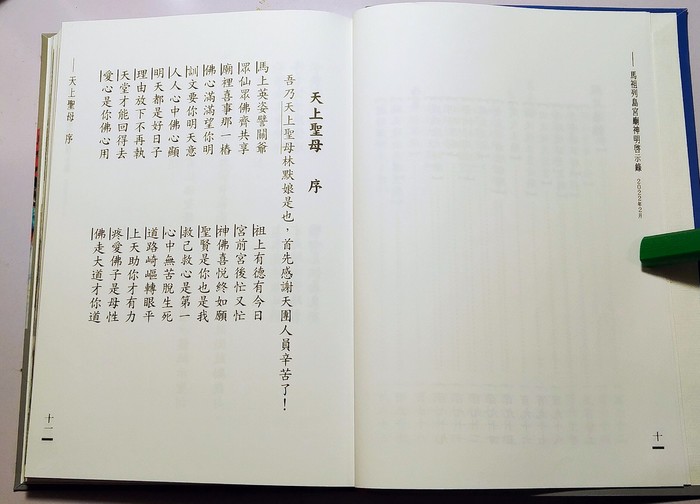 ——馬祖列島宮廟神明啓示錄 2022年2月
十
天上聖母 序
吾乃天上聖母林默娘是也，首先感謝天團人員辛苦了！
馬上英姿譬關爺 祖上有德有今日
眾仙眾佛齊共享 宮前宮後忙又忙
廟裡喜事那一樁 神佛喜悅終如願
佛心滿滿望你明 聖賢是你也是我
訓文要你明天意 救己救心是第一
人人心中佛心顯 心中無苦脫生死
明天都是好日子 道路崎嶇轉眼平
理由放下不再執 上天助你才有力
天堂才能回得去 疼愛佛子是母性
愛心是你佛心用 佛走大道才你道
——天上聖母 序
十一